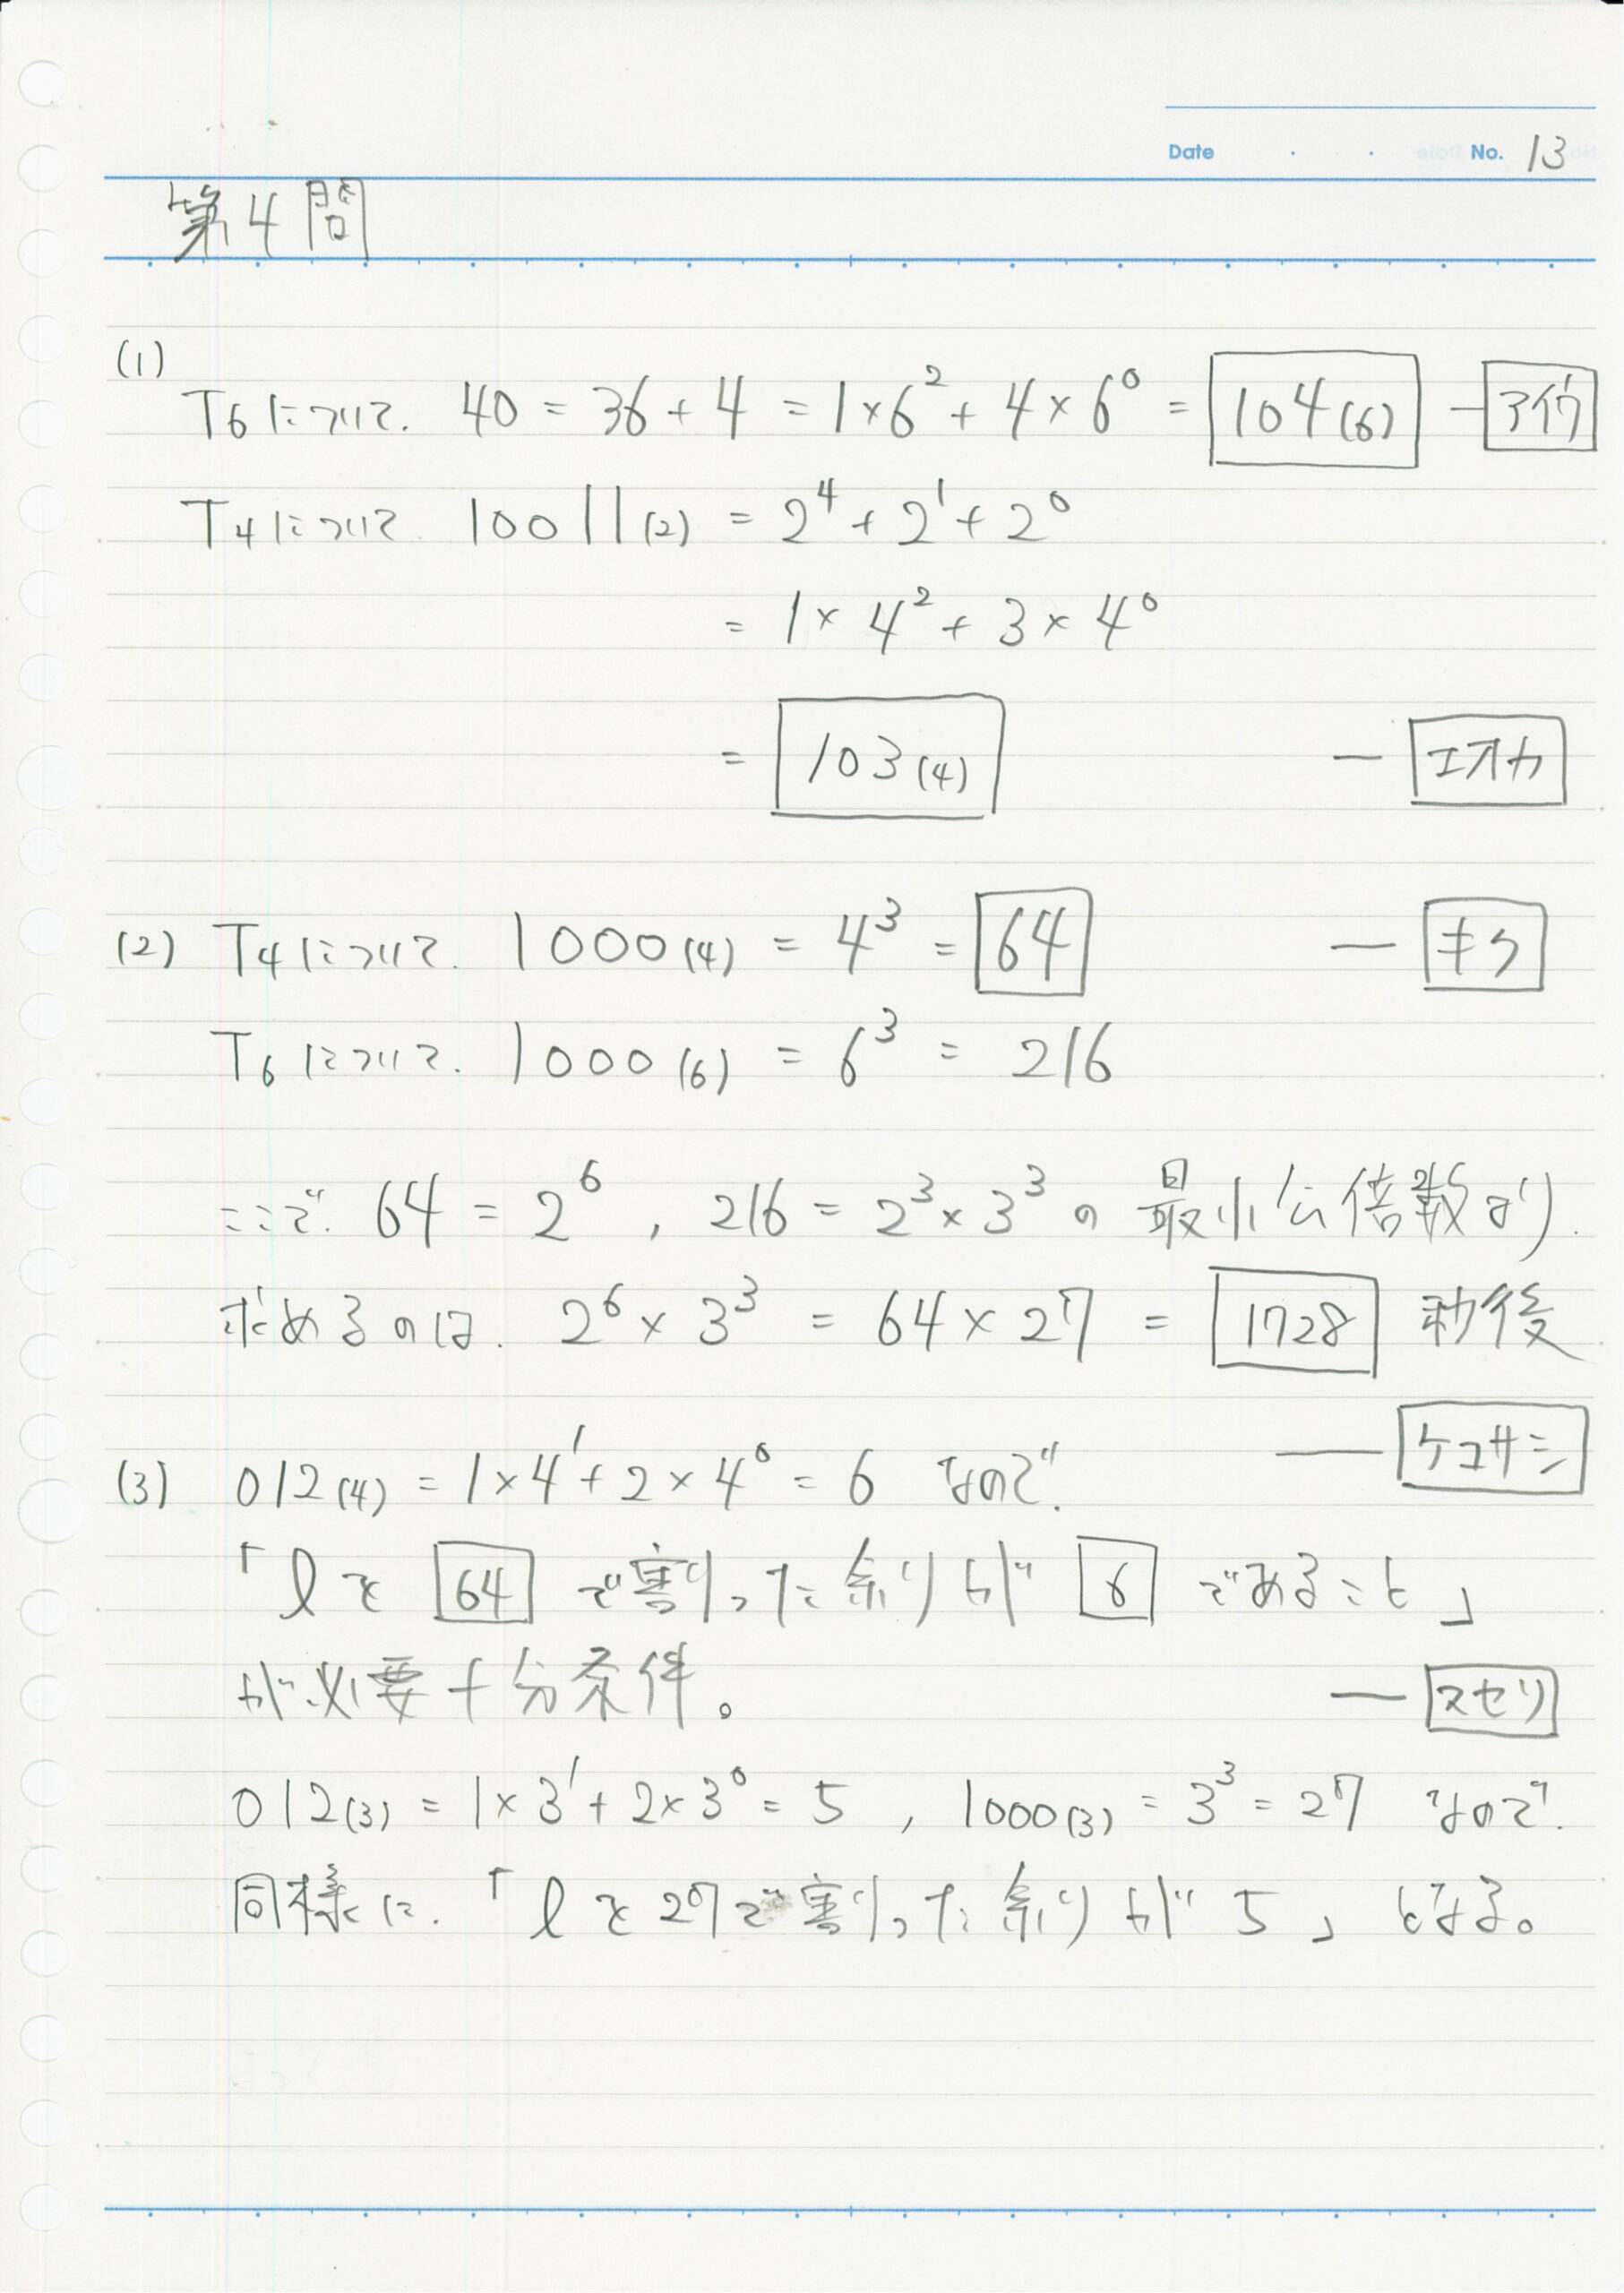 Date . . . No. 13
第4問
(1)
T6について. 40 = 36 + 4 = 1×6² + 4×6⁰ = 104(6) — アイウ
T4について 10011(2) = 2⁴ + 2¹ + 2⁰
= 1× 4² + 3× 4⁰
= 103(4) — エオカ
(2) T4について. 1000(4) = 4³ = 64 — キク
T6について. 1000(6) = 6³ = 216
ここで. 64 = 2⁶ , 216 = 2³×3³ の 最小公倍数より.
求めるのは. 2⁶ × 3³ = 64 × 27 = 1728 秒後
— ケコサシ
(3) 012(4) = 1×4¹ + 2×4⁰ = 6 なので.
「lを 64 で割った余りが 6 であること」
が必要十分条件。 — スセソ
012(3) = 1×3¹ + 2×3⁰ = 5 , 1000(3) = 3³ = 27 なので.
同様に. 「lを27で割った余りが5」となる。